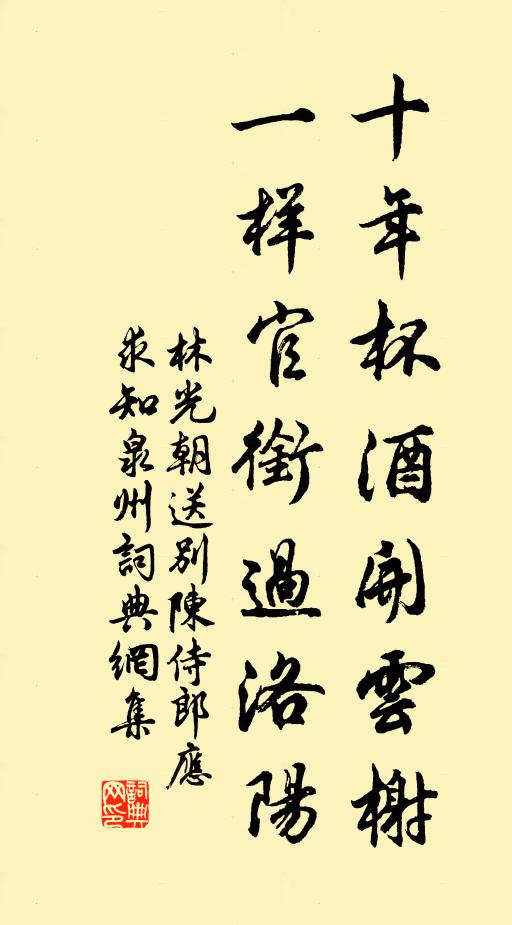 十年杯酒開雲榭
一样官銜過洛陽
林光朝送别陳侍郎應
求知泉州詞典網集
詞典网印